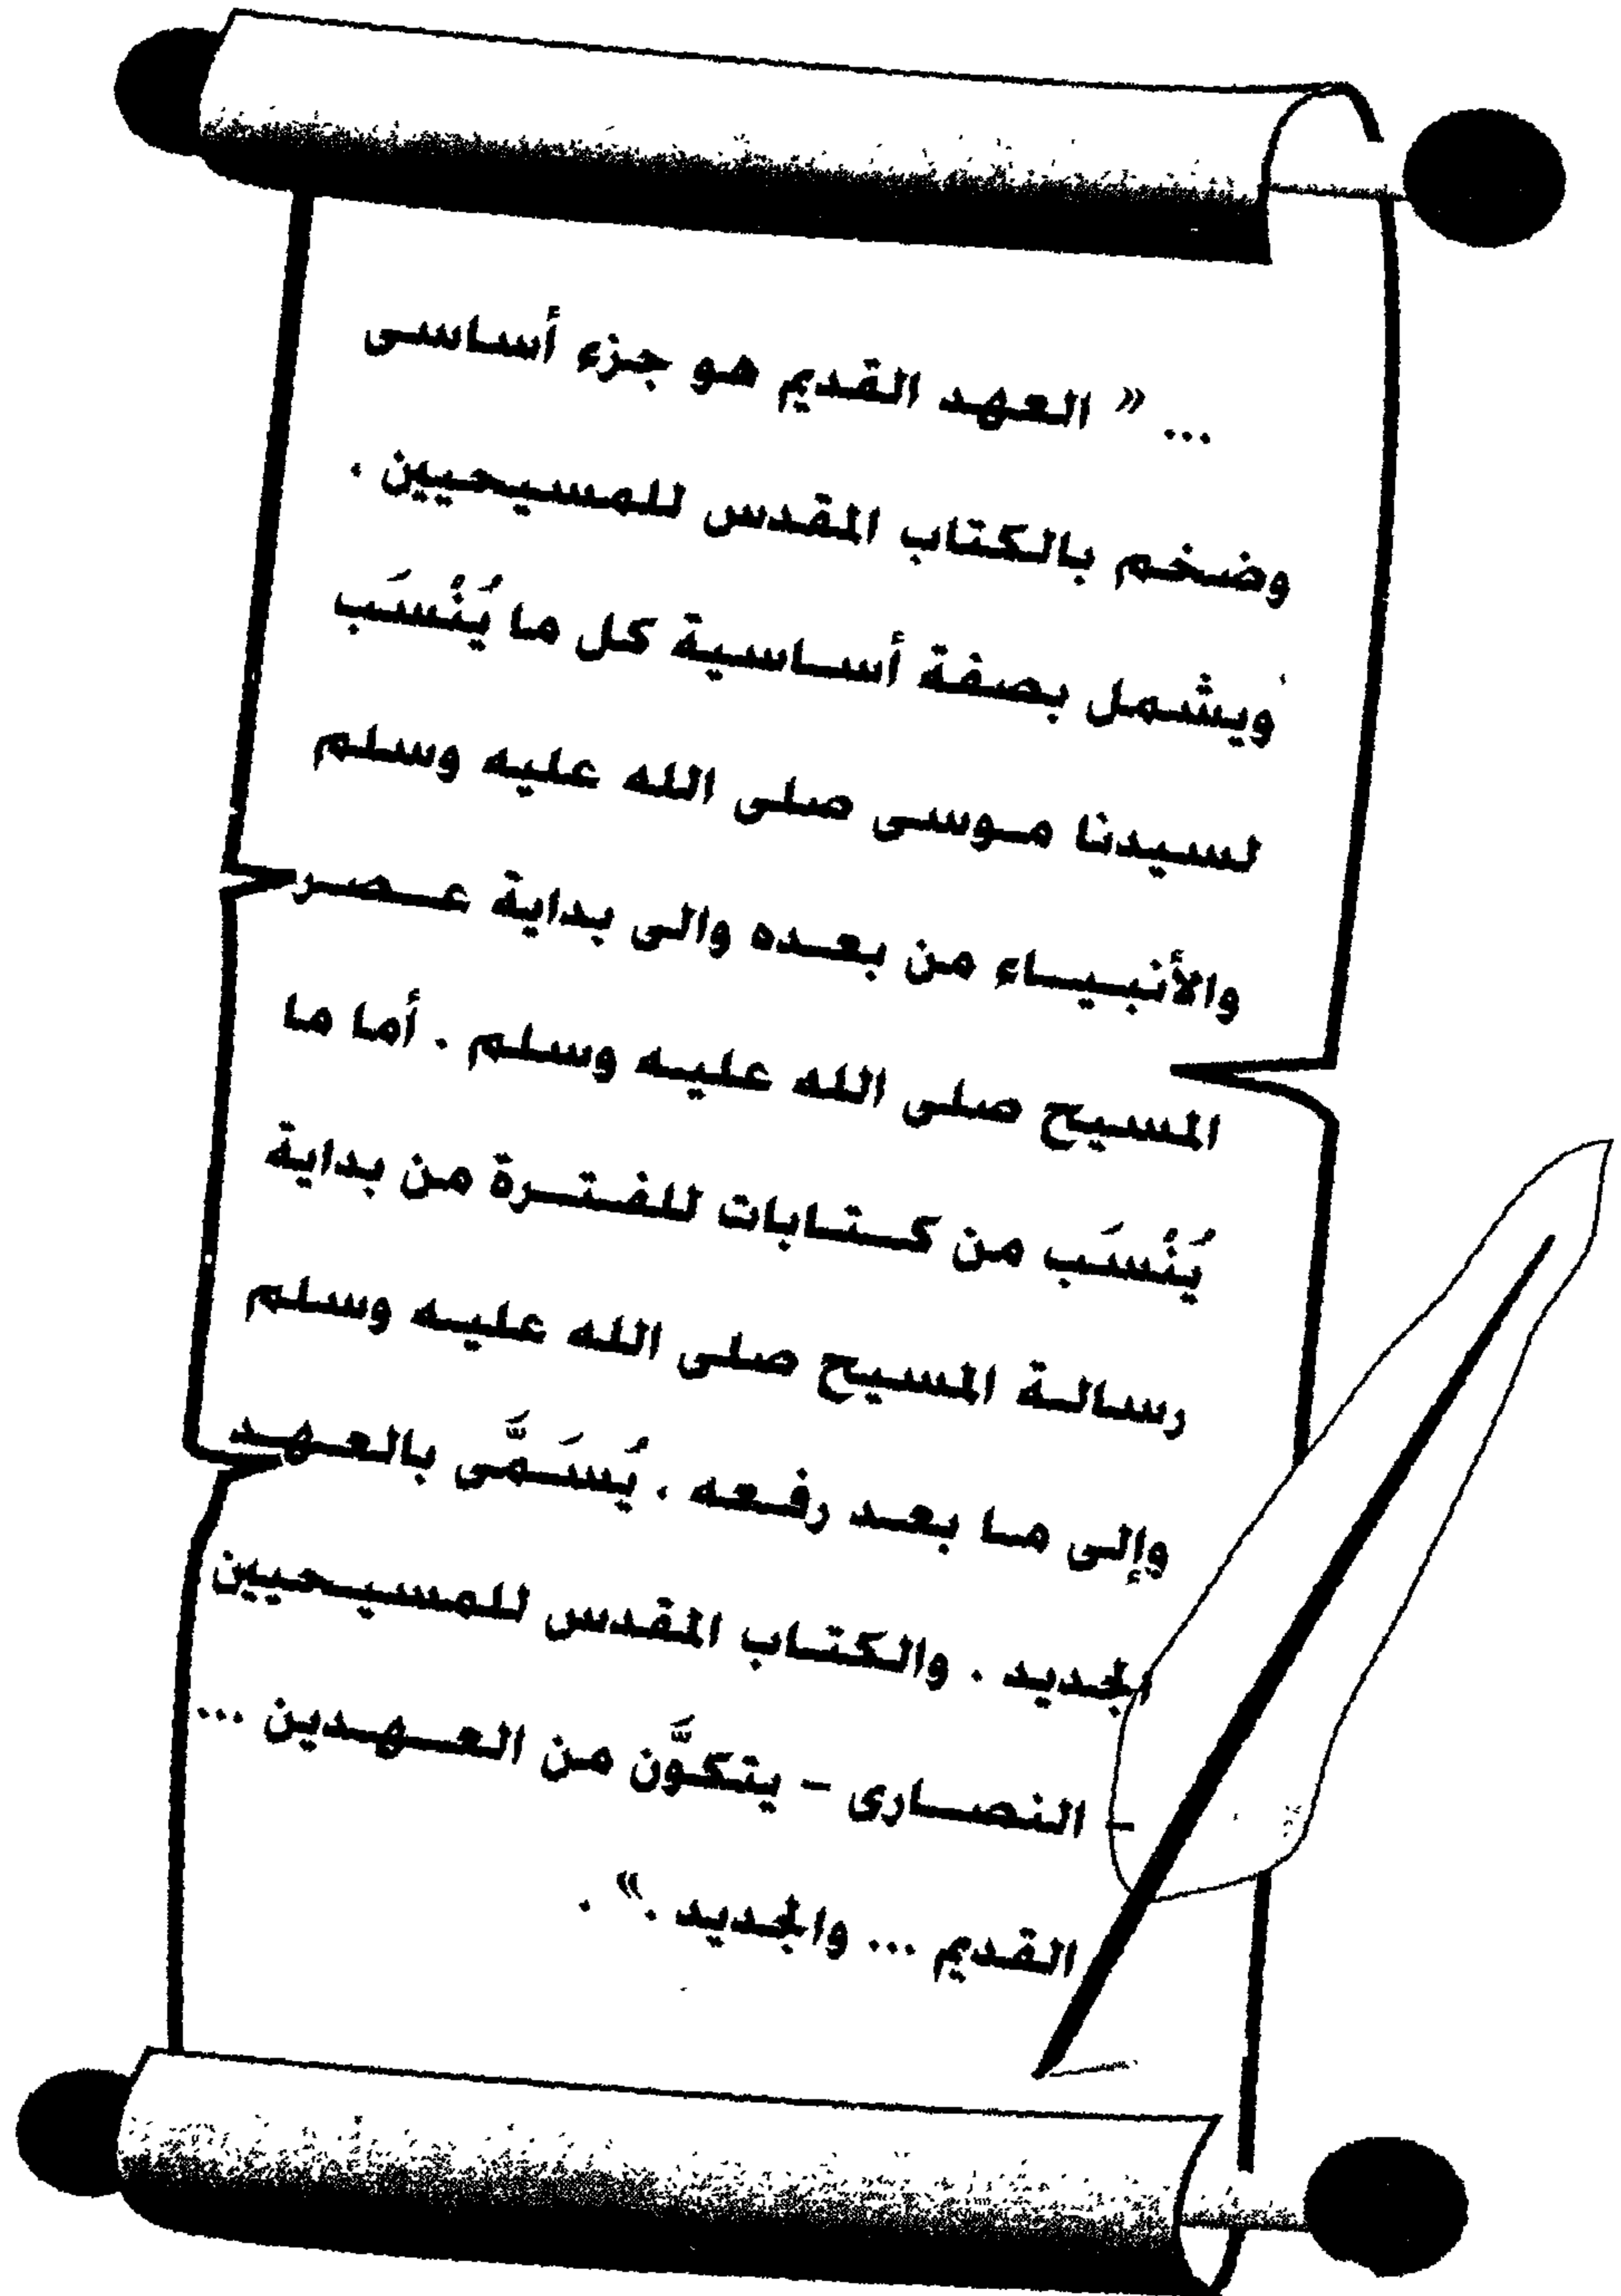 ... « العهد القديم هو جزء أساسى
وضخم بالكتاب المقدس للمسيحيين .
ويشمل بصفة أساسية كل ما يُنْسَب
لسيدنا موسى صلى الله عليه وسلم
والأنبياء من بعده والى بداية عصر
المسيح صلى الله عليه وسلم . أما ما
يُنْسَب من كتابات للفترة من بداية
رسالة المسيح صلى الله عليه وسلم
وإلى ما بعد رفعه . يُسَمَّى بالعهد
الجديد . والكتاب المقدس للمسيحيين
- النصارى - يتكوَّن من العهدين ...
القديم ... والجديد . » .